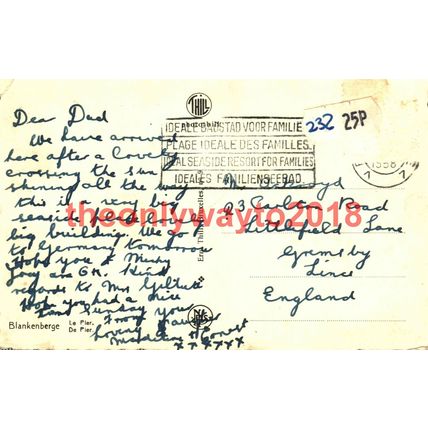 Dear Dad
We have arrived
here after a lovely
crossing the sun
shining all the way
this is a very big
seaside place lovely
big building. We go
to Germany tomorrow
Hope you &
Joy are OK. Kind
regards to Mrs
Hope you had a nice
time Sunday
Loving
THILL
IDEALE BADSTAD VOOR FAMILIE
PLAGE IDEALE DES FAMILLES
IDEAL SEASIDE RESORT FOR FAMILIES
IDEALES FAMILIENSEEBAD
232 25P
1958
23 Carlton Road
Littlefield Lane
Grimsby
Lincs
England
theonlywayto2018
Ern. Thill, Bruxelles
Blankenberge
Le Pier.
De Pier.